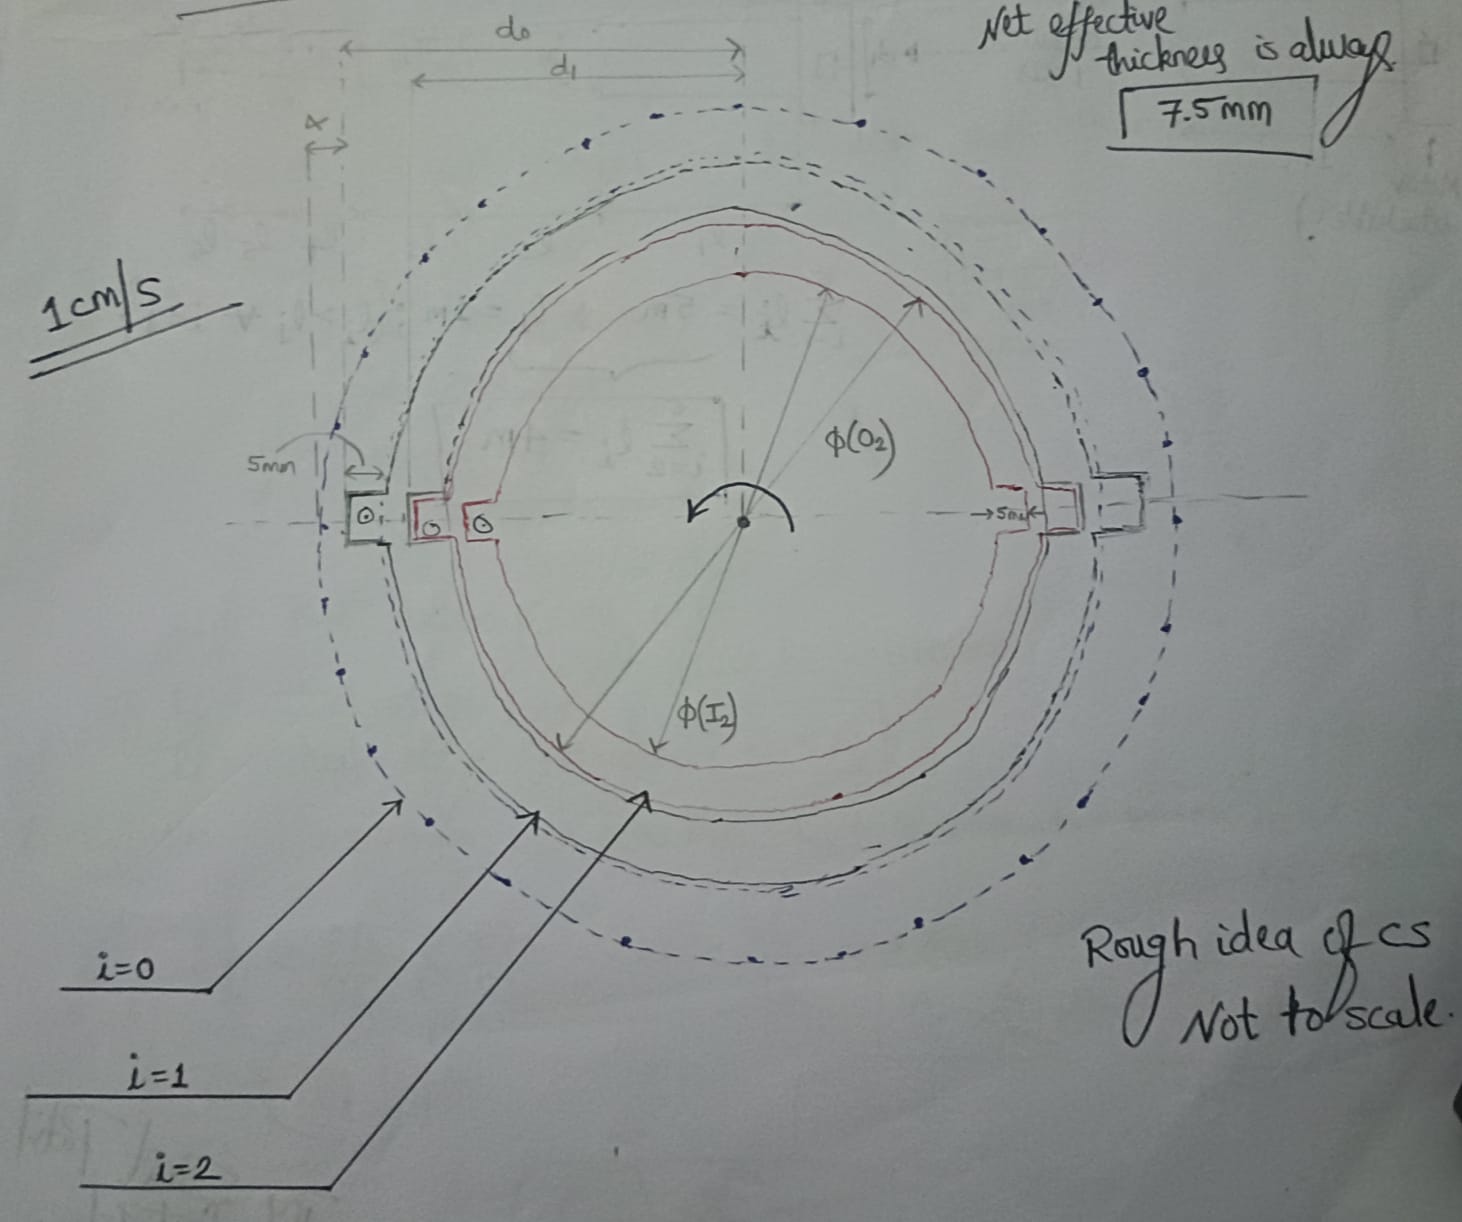 Net effective
thickness is always
7.5mm
d₀
d₁
x
1cm/s
5mm
ϕ(O₂)
ϕ(I₂)
i=0
i=1
i=2
Rough idea of CS
Not to scale.